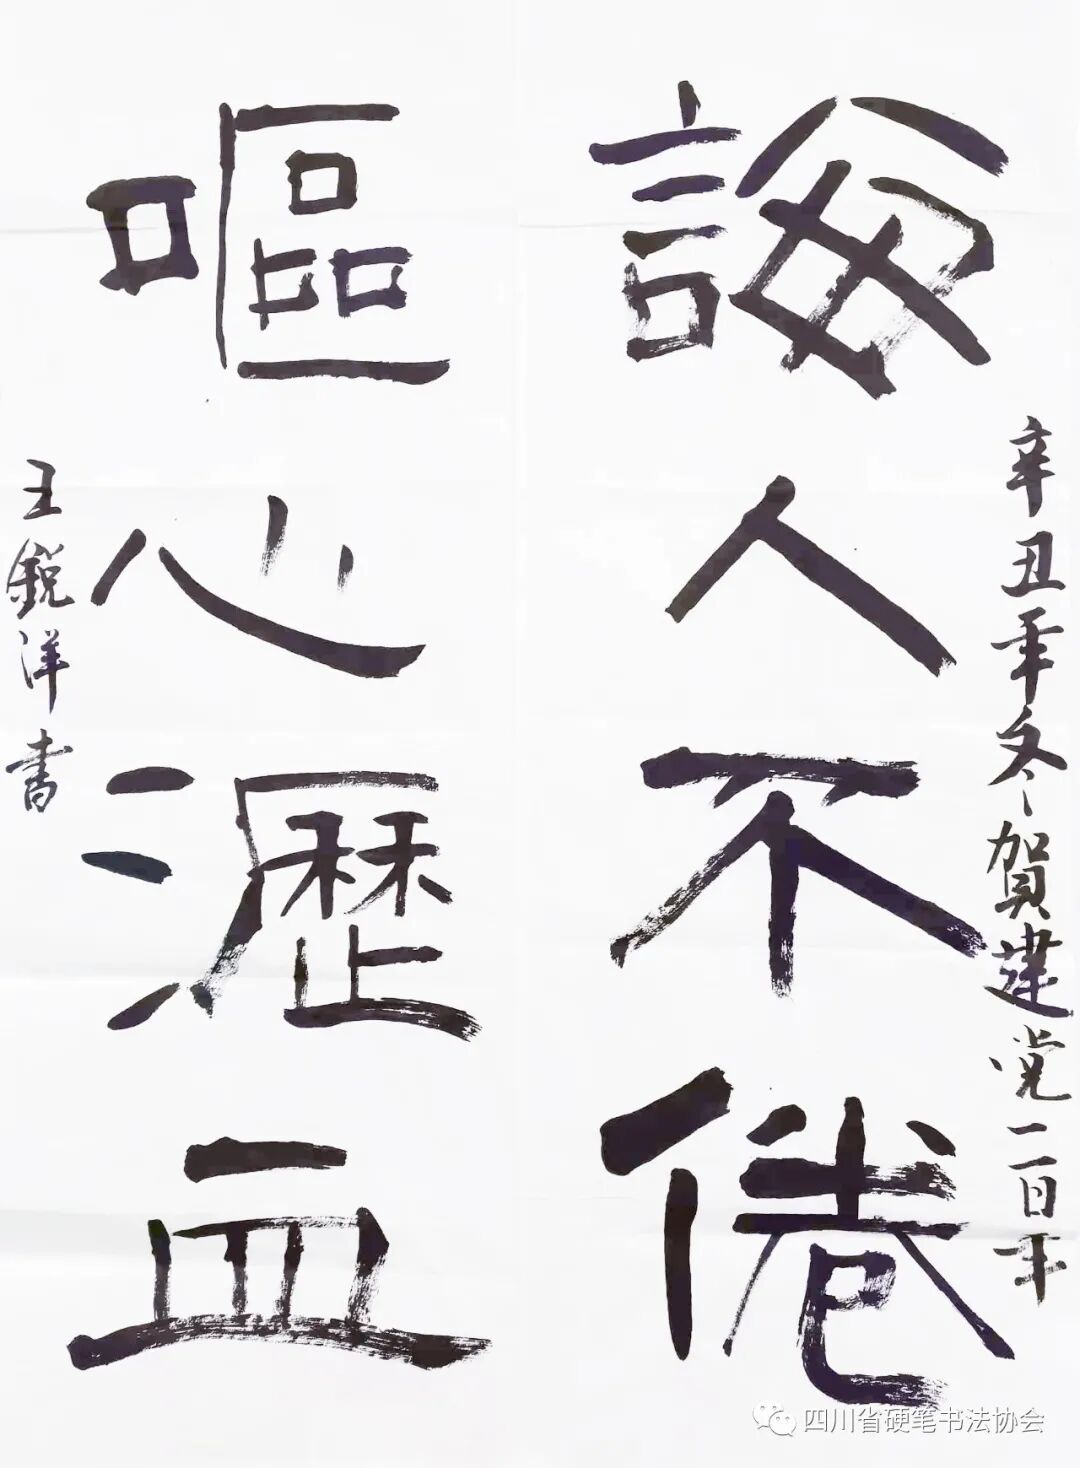 辛丑年冬賀建党一百年
誨人不倦
嘔心瀝血
王銳洋書
四川省硬笔书法协会